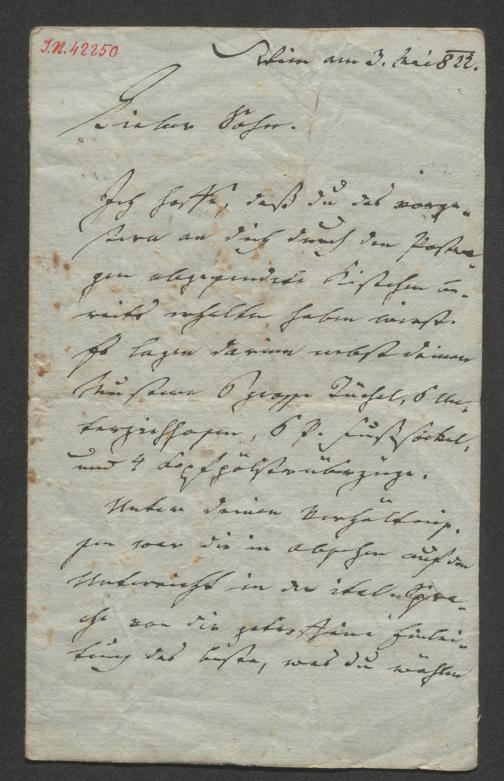 I.N. 42250
Wien am 3. Mai 822.
Lieber Sohn.
Ich hoffe, daß du das vorge-
stern an dich durch den Postwa-
gen abgesendete Kistchen be-
reits erhalten haben wirst.
Es lagen darinn nebst deinen
6 große Tüchel, 6 Un-
terziehhosen, 6 P. Fußsöckel,
und 4 Kopfpölsterüberzüge.
Unter deinen Verhältniß-
sen war die in absehen auf den
Unterricht in der ital. Spra-
che von dir getroffene Einlei-
tung das beste, was du wählen